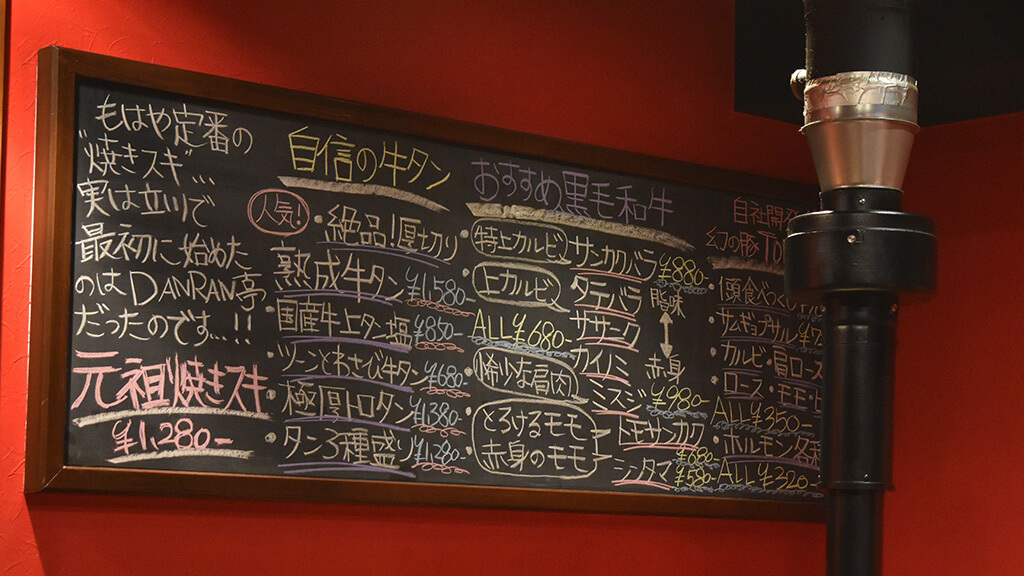 もはや定番の
"焼きスキ"…
実は立川で
最初に始めた
のはDANRAN亭
だったのです…!!
元祖焼きスキ
¥1,280-
自信の牛タン
人気!
・絶品!厚切り
熟成牛タン ¥1,580-
・国産牛上タン塩 ¥850-
・ツーンとわさび牛タン ¥680-
・極旨トロタン ¥1,380-
・タン3種盛り ¥1,280-
おすすめ黒毛和牛
・特上カルビ サンカクバラ ¥880-
・上カルビ タテバラ
ALL¥680- ササーク
カイノミ
脂味
赤身
・希少な肩肉 ミスジ ¥980-
・とろけるモモ トモサンカク ¥680-
赤身のモモ シンタマ ¥580-
自社開
幻の豚 TO
サムギョプサル
・カルビ・肩ロース
・ロース・モモ・ヒ
ALL¥350-
・ホルモン各種
ALL¥320-